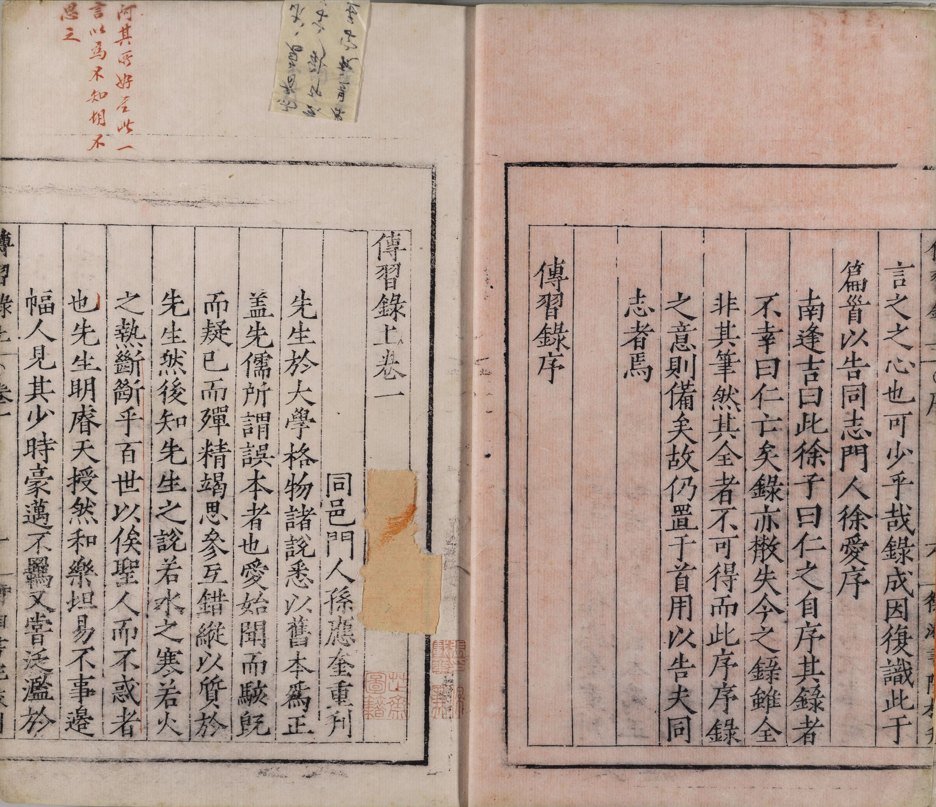 言之之心也可少乎哉錄成因復識此于
篇首以告同志門人徐愛序
南逢吉曰此徐子曰仁之自序其錄者
不幸曰仁亡矣錄亦散失今之錄雖全
非其筆然其全者不可得而此序序錄
之意則備矣故仍置于首用以告夫同
志者焉
傳習錄序
傳習錄上卷一
同邑門人孫應奎重刊
先生於大學格物諸說悉以舊本爲正
盖先儒所謂誤本者也愛始聞而駭旣
而疑已而殫精竭思參互錯縱以質於
先生然後知先生之說若水之寒若火
之熱斷斷乎百世以俟聖人而不惑者
也先生明睿天授然和樂坦易不事邊
幅人見其少時豪邁不羈又嘗泛濫於
阿其所好至此一
言以爲不知胡不
思之